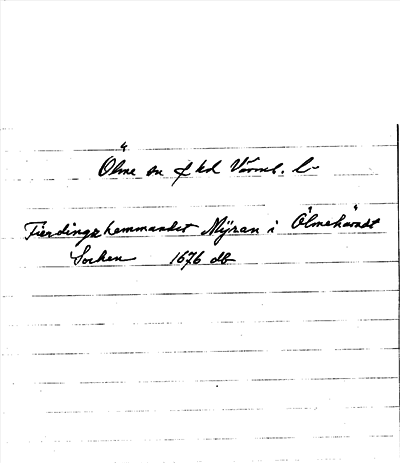 Ölme sn f hd Värml. l-
Fierdingzhemmandet Mÿran i Ölmehäradt
Sochen 1676 db